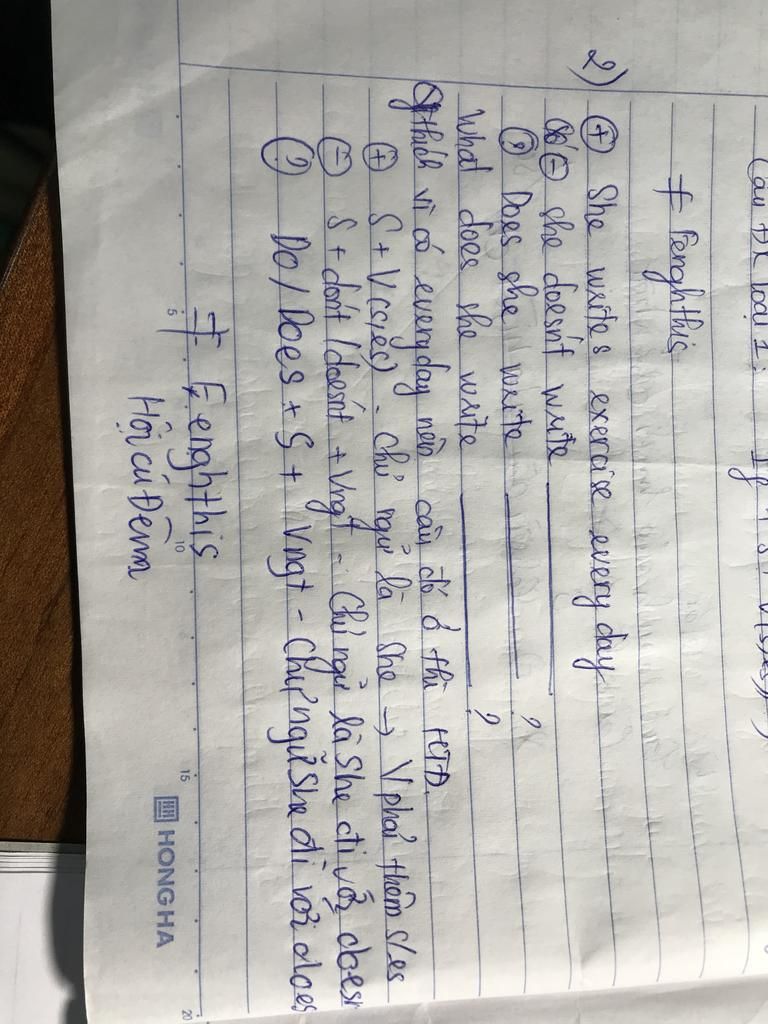 Câu ĐK loại 1: If + S + V(s,es),
≠ Fenghthis
2) (+) She writes exercise every day
(-) she doesn't write ________
(?) Does she write ________ ?
What does she write ________ ?
Gthích vì có everyday nên câu đó ở thì HTD.
(+) S + V(s,es) - Chủ ngữ là She → V phải thêm s/es
(-) S + don't/doesn't + Vngt - Chủ ngữ là She đi với doesn
(?) Do/Does + S + Vngt - Chủ ngữ She đi với does
≠ Fenghthis
5 10 15 20
HONG HA